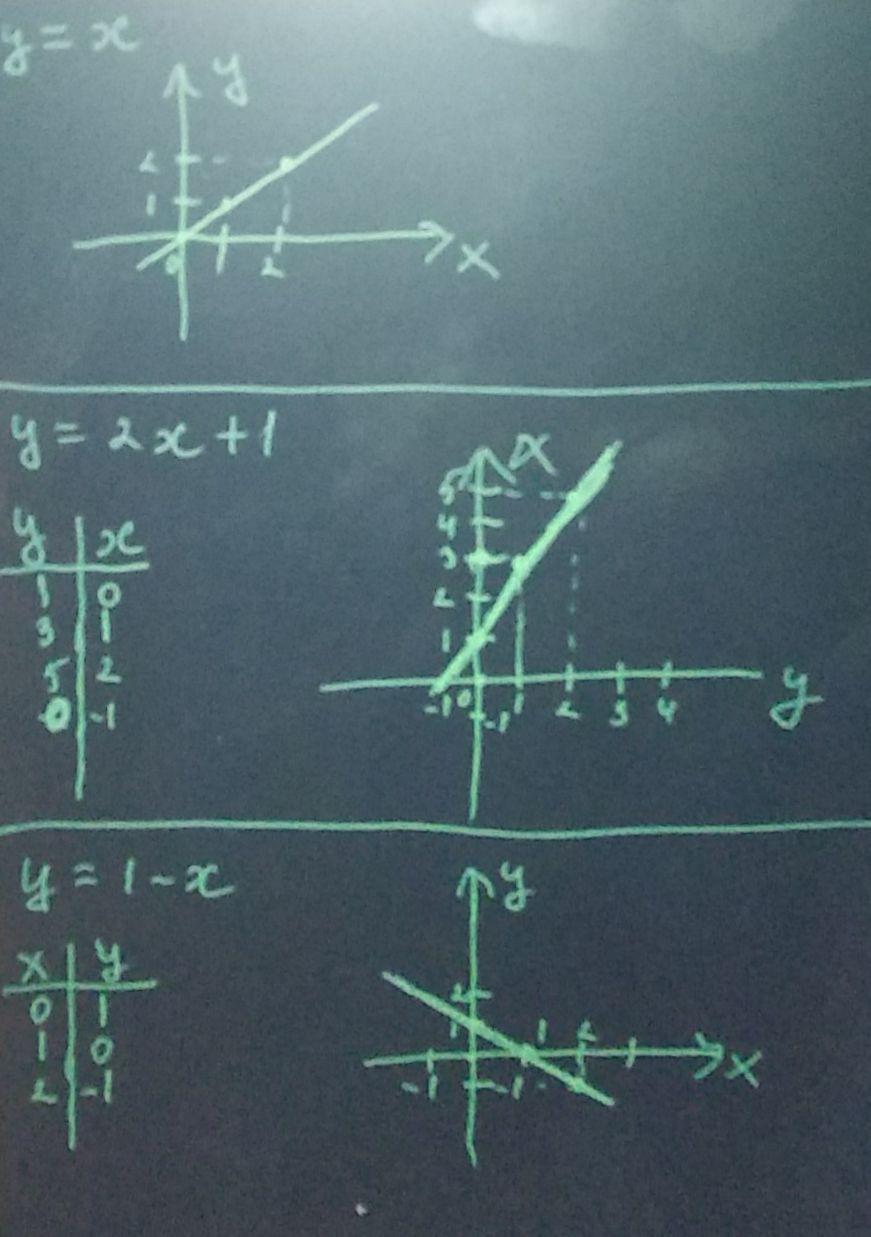 y = x
y
2
1
0 1 2
x
y = 2x + 1
y x
1 0
3 1
5 2
0 -1
x
5
4
3
2
1
-1 0 1 2 3 4
-1
y
y = 1 - x
x y
0 1
1 0
2 -1
y
2
1
1 2
-1
-1
x